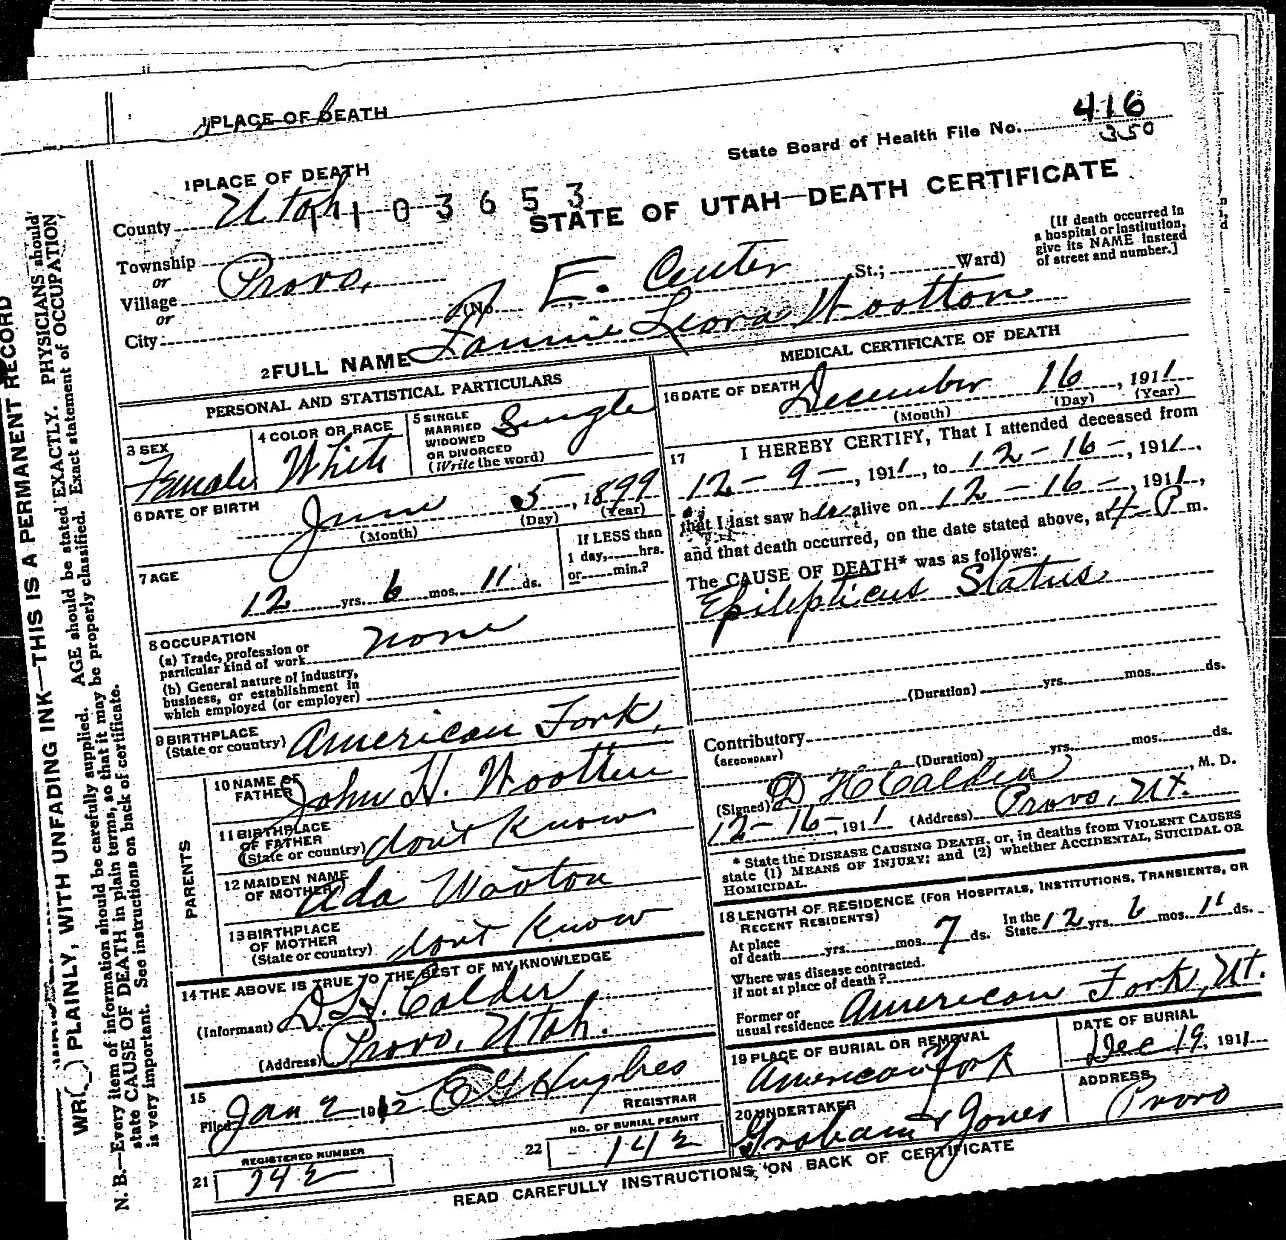 PLACE OF DEATH
State Board of Health File No. 416
350
1 PLACE OF DEATH
County Utah 1103653
STATE OF UTAH—DEATH CERTIFICATE
Township
or
Village Provo,
or
City
(No. E. Center St.; Ward)
[If death occurred in
a hospital or institution,
give its NAME instead
of street and number.]
2 FULL NAME Fannie Leora Wootton
PERSONAL AND STATISTICAL PARTICULARS
3 SEX
Female
4 COLOR OR RACE
White
5 SINGLE
MARRIED
WIDOWED
OR DIVORCED
(Write the word)
Single
6 DATE OF BIRTH
June 5, 1899
(Month) (Day) (Year)
7 AGE
12 yrs. 6 mos. 11 ds.
If LESS than
1 day, hrs.
or min.?
8 OCCUPATION
(a) Trade, profession or
particular kind of work none
(b) General nature of industry,
business, or establishment in
which employed (or employer)
9 BIRTHPLACE
(State or country) American Fork,
PARENTS
10 NAME OF
FATHER John H. Wootten
11 BIRTHPLACE
OF FATHER
(State or country) don't know
12 MAIDEN NAME
OF MOTHER Ada Wooton
13 BIRTHPLACE
OF MOTHER
(State or country) dont know
14 THE ABOVE IS TRUE TO THE BEST OF MY KNOWLEDGE
(Informant) D H Calder
(Address) Provo, Utah.
15
Filed Jan 2 1912 E G Hughes
REGISTRAR
REGISTERED NUMBER
21 142
NO. OF BURIAL PERMIT
22 142
MEDICAL CERTIFICATE OF DEATH
16 DATE OF DEATH December 16, 1911
(Month) (Day) (Year)
17 I HEREBY CERTIFY, That I attended deceased from
12-9-, 1911, to 12-16-, 1911,
that I last saw her alive on 12-16-, 1911,
and that death occurred, on the date stated above, at 4-P m.
The CAUSE OF DEATH* was as follows:
Epilepticus Status
(Duration) yrs. mos. ds.
Contributory
(SECONDARY)
(Duration) yrs. mos. ds.
(Signed) D H Calder, M. D.
12-16-, 1911 (Address) Provo, Ut.
* State the DISEASE CAUSING DEATH, or, in deaths from VIOLENT CAUSES
state (1) MEANS OF INJURY; and (2) whether ACCIDENTAL, SUICIDAL OR
HOMICIDAL.
18 LENGTH OF RESIDENCE (FOR HOSPITALS, INSTITUTIONS, TRANSIENTS, OR
RECENT RESIDENTS)
At place
of death yrs. mos. 7 ds. In the
State 12 yrs. 6 mos. 11 ds.
Where was disease contracted.
if not at place of death?
Former or
usual residence American Fork, Ut.
19 PLACE OF BURIAL OR REMOVAL
American Fork
DATE OF BURIAL
Dec 19, 1911
20 UNDERTAKER
Graham & Jones
ADDRESS
Provo
READ CAREFULLY INSTRUCTIONS, ON BACK OF CERTIFICATE
PLAINLY, WITH UNFADING INK—THIS IS A PERMANENT RECORD
N. B.—Every item of information should be carefully supplied. AGE should be stated EXACTLY. PHYSICIANS should
state CAUSE OF DEATH in plain terms, so that it may be properly classified. Exact statement of OCCUPATION
is very important. See instructions on back of certificate.